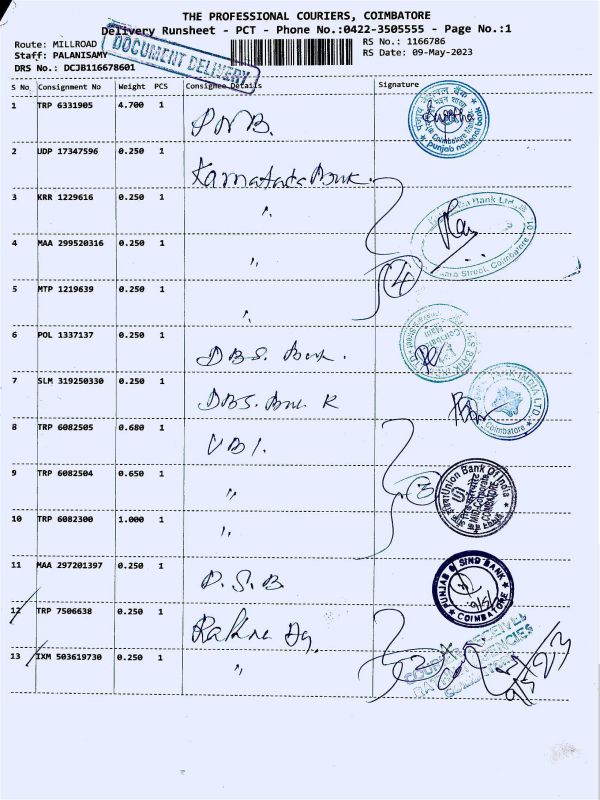 THE PROFESSIONAL COURIERS, COIMBATORE
Delivery Runsheet - PCT - Phone No.:0422-3505555 - Page No.:1
Route: MILLROAD
RS No.: 1166786
Staff: PALANISAMY
RS Date: 09-May-2023
DRS No.: DCJB116678601
DOCUMENT DELIVERY
S No Consignment No Weight PCS Consignee Details Signature
1 TRP 6331905 4.700 1 P N B.
punjab national bank
2 UDP 17347596 0.250 1 Karnataka Bank
3 KRR 1229616 0.250 1 "
Bank Ltd.
Street, Coimbatore
4 MAA 299520316 0.250 1 "
4
5 MTP 1219639 0.250 1 "
6 POL 1337137 0.250 1 DBS. Bank.
7 SLM 319250330 0.250 1 DBS. Bank
INDIA LTD.
Coimbatore
8 TRP 6082505 0.680 1 UBI.
9 TRP 6082504 0.650 1 "
3
Union Bank Of India
COIMBATORE
10 TRP 6082300 1.000 1 "
11 MAA 297201397 0.250 1 P.S.B
PUNJAB & SIND BANK
COIMBATORE
12 TRP 7506638 0.250 1
13 IXM 503619730 0.250 1 "
AGENCIES
9/5/23